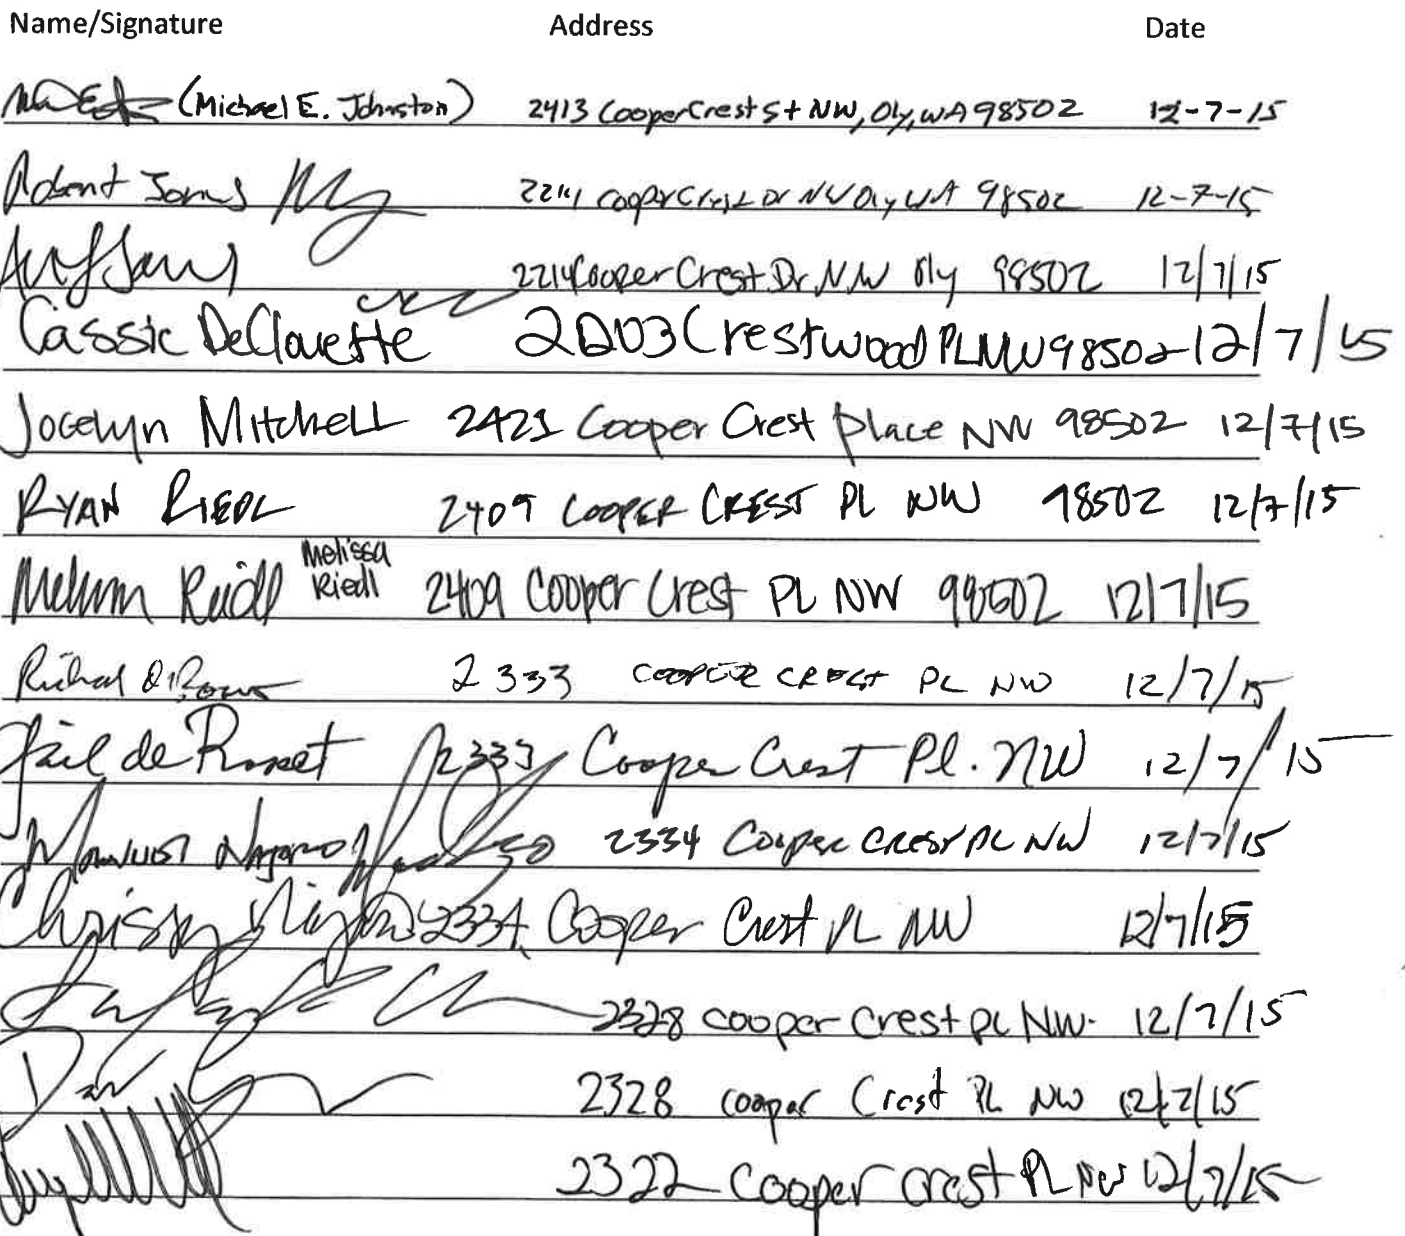 Name/Signature Address Date
(Michael E. Johnston) 2413 Cooper Crest St NW, Oly, WA 98502 12-7-15
Robert Jones Cooper Crest Dr NW Oly WA 98502 12-7-15
2214 Cooper Crest Dr NW Oly 98502 12/7/15
Cassie DeClouette 2203 Crestwood PL NW 98502 12/7/15
Jocelyn Mitchell 2421 Cooper Crest Place NW 98502 12/7/15
RYAN RIEDL 2409 COOPER CREST PL NW 98502 12/7/15
Melissa Riedl Melissa Riedl 2409 Cooper Crest PL NW 98502 12/7/15
2333 COOPER CREST PL NW 12/7/15
Gail de Rouset 2333 Cooper Crest Pl. NW 12/7/15
2334 Cooper CREST PL NW 12/7/15
Chrissy 2334 Cooper Crest PL NW 12/7/15
2328 Cooper Crest PL NW. 12/7/15
2328 Cooper Crest PL NW 12/7/15
2322 Cooper crest PL NW 12/7/15